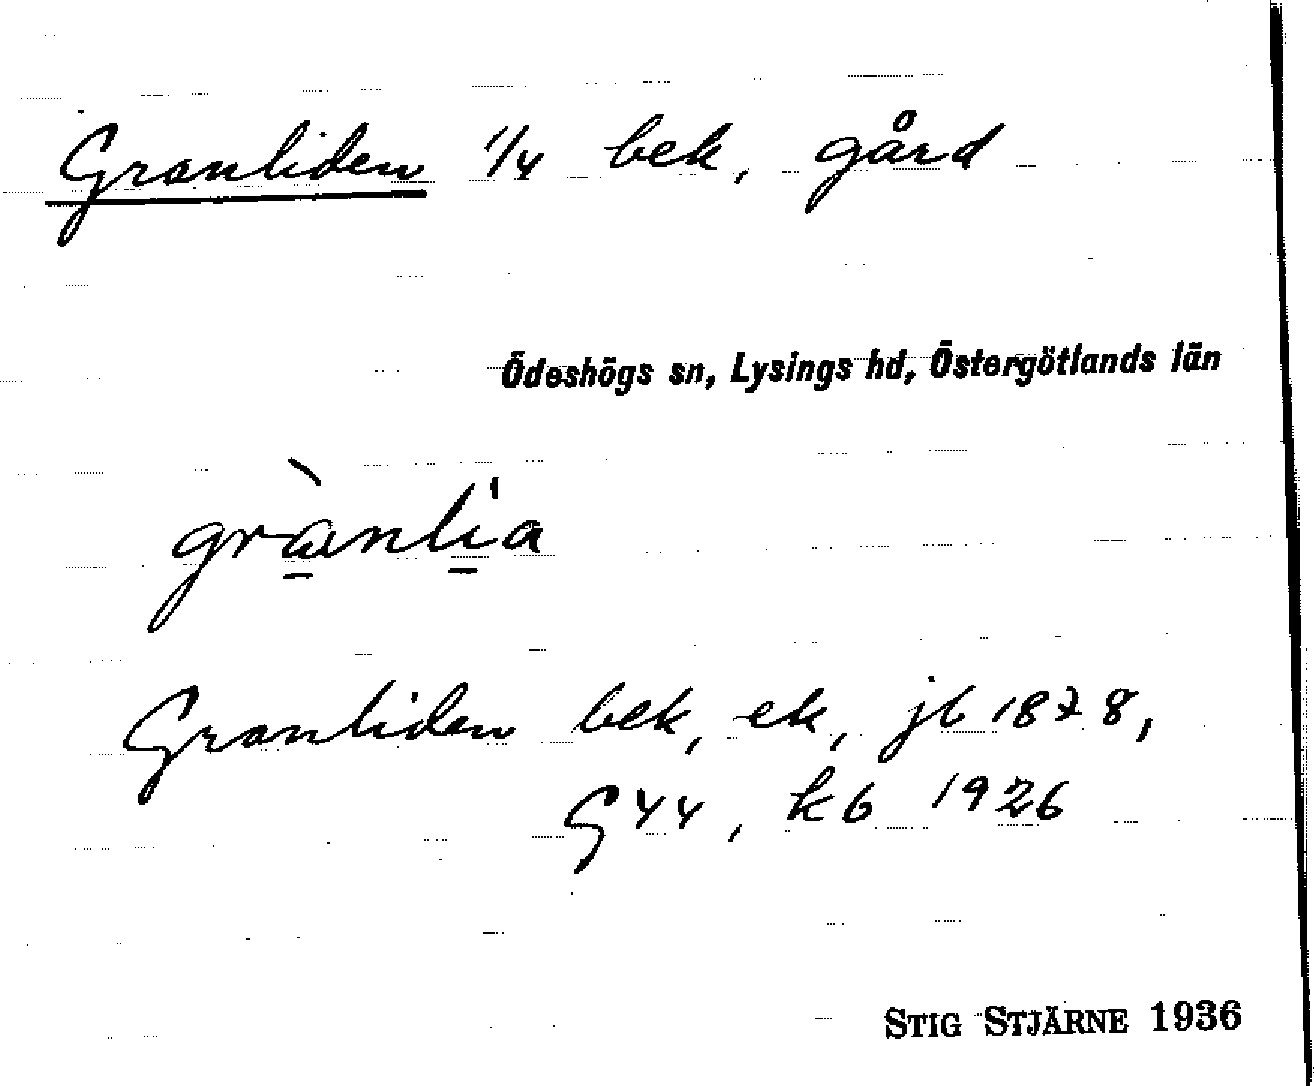 Granliden 1/4 bek, gård
Ödeshögs sn, Lysings hd, Östergötlands län
grànlia
Granliden bek, ek, jb 1878,
G44, kb 1926
STIG STJÄRNE 1936